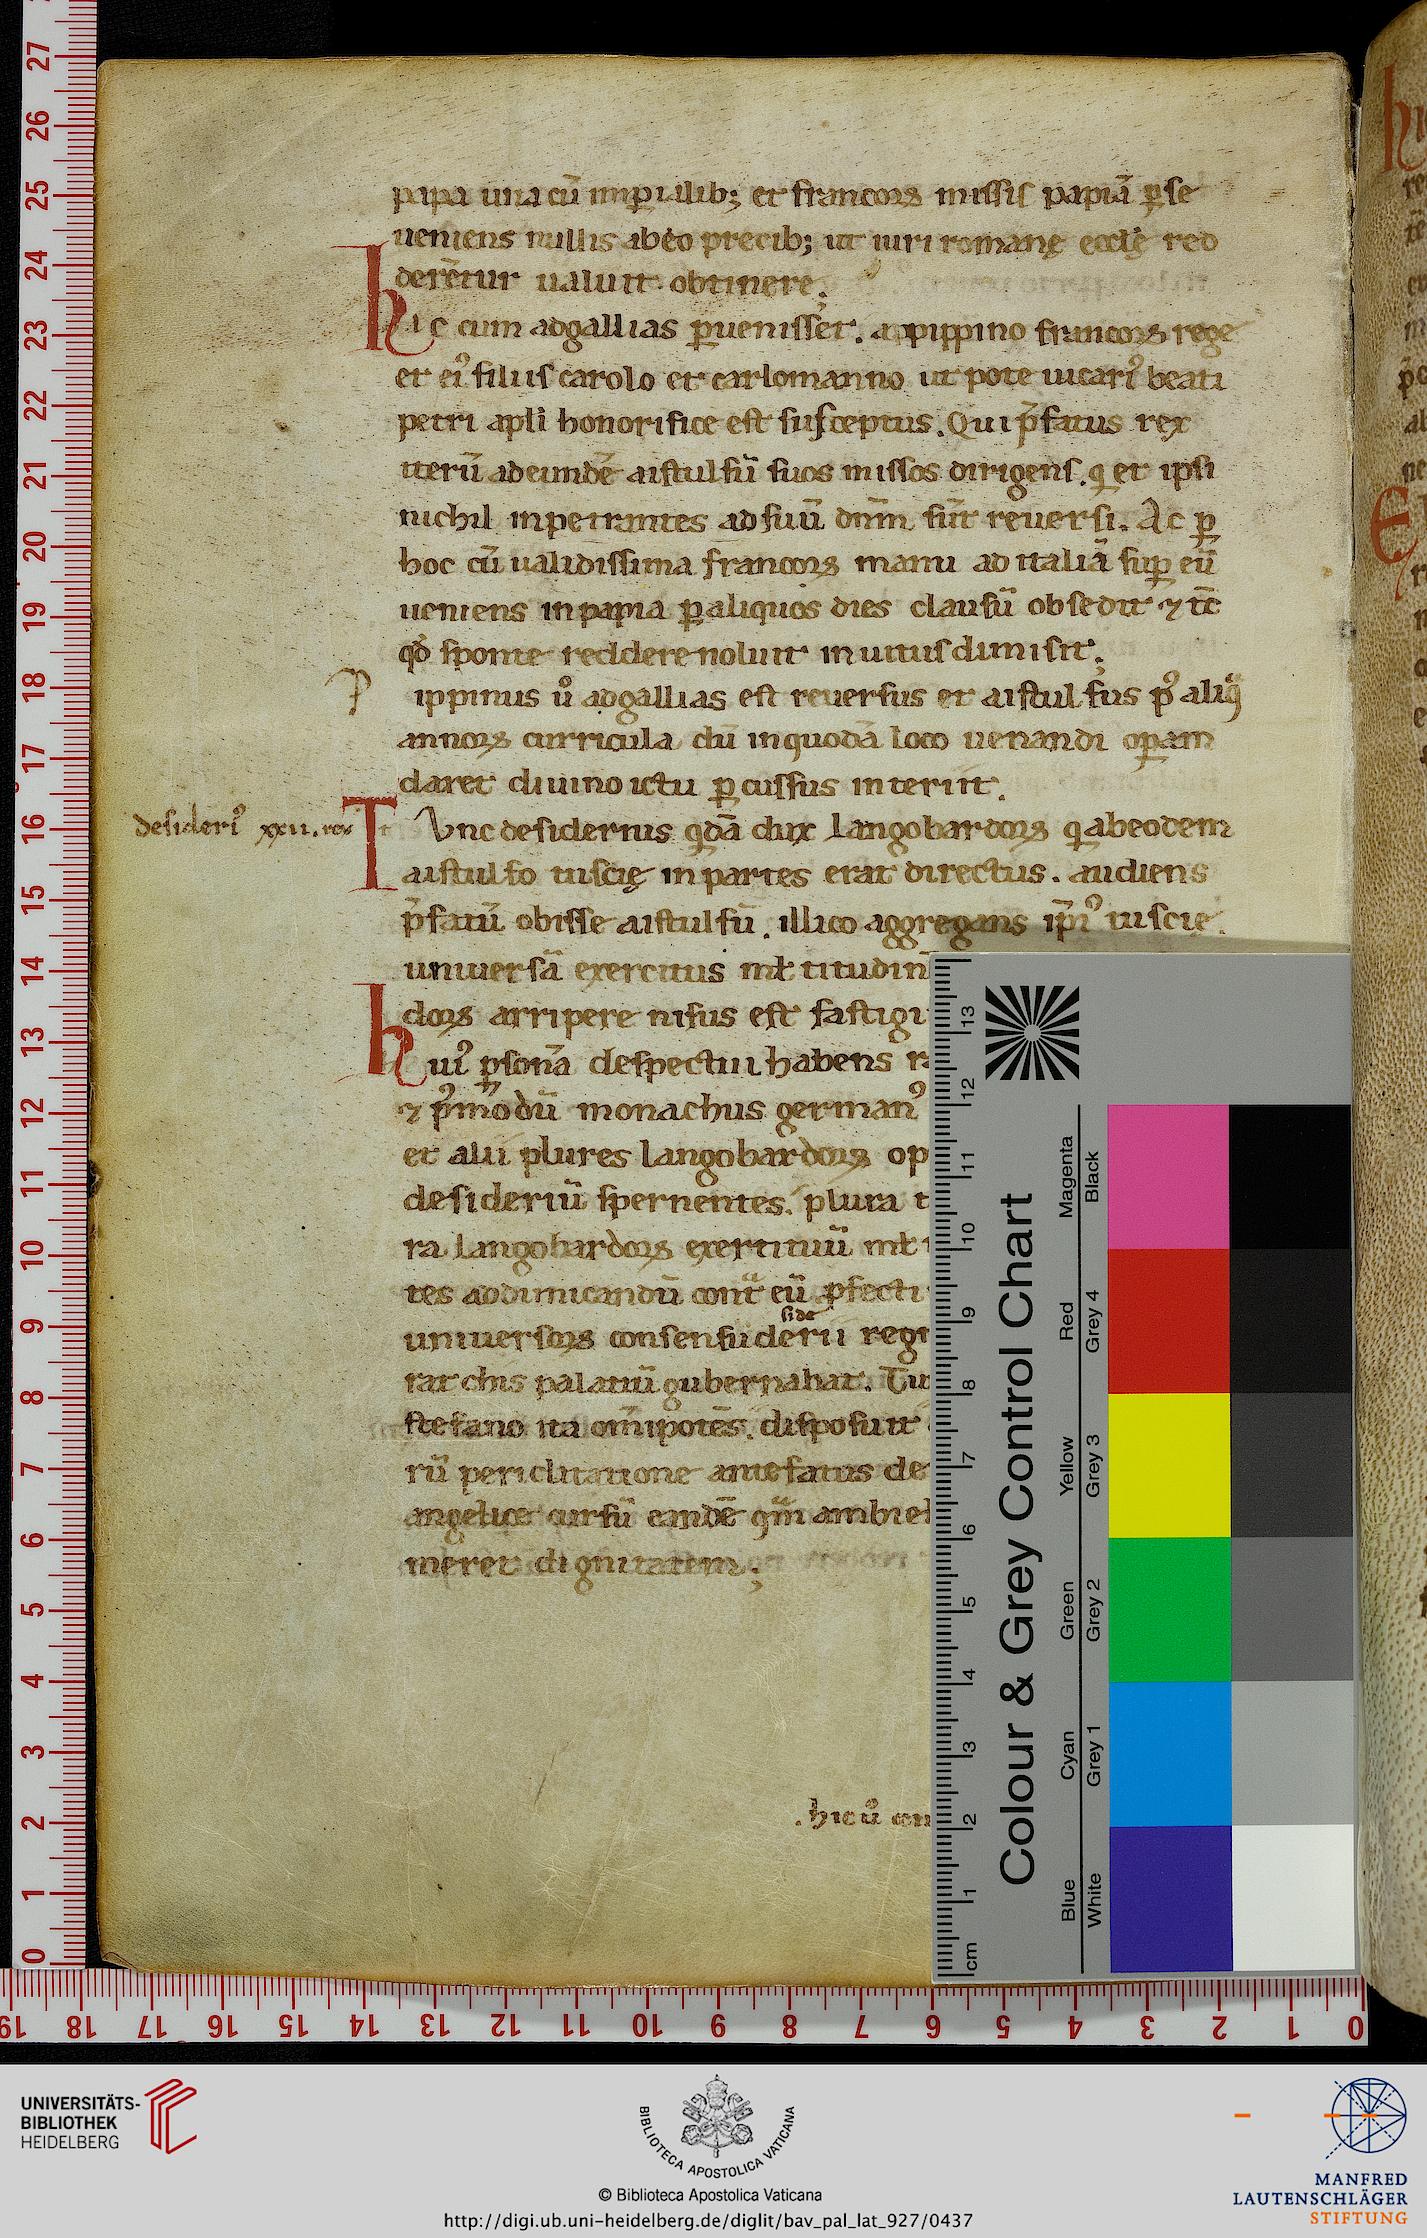 papa una cū imꝑialib; et francoꝝ missis papiā ꝑ se
ueniens nullis ab eo precib; ut iuri romanę ecclę red
derētur ualuit obtinere;
hic cum ad gallias ꝑuenisset. a pippino francoꝝ rege
et eiꝰ filiis carolo et carlomanno ut pote uicariꝰ beati
petri apl̄i honorifice est susceptus. Qui p̄fatus rex
iterū ad eundē aistulfū suos missos dirigens. q et ipsi
nichil inpetrantes ad suū dn̄m sūt reuersi. Ac ꝑ
hoc cū ualidissima francoꝝ manu ad italiā suꝑ eū
ueniens in papia ꝑ aliquos dies clausū obsedit ⁊ tc̄
qd̓ sponte reddere noluit inuitus dimisit;
Pippinus uͦ ad gallias est reuersus et aistulfus pꝰ aliqͣ
annoꝝ curricula dū in quodā loco uenandi oꝑam
daret diuino ictu ꝑcussus interiit.
desideriꝰ xxii. rex
Tunc desiderius qdā dux langobardoꝝ q ab eodem
aistulfo tuscię in partes erat directus. audiens
p̄fatū obisse aistulfū. illico aggregans ip̄iꝰ tuscię
uniuersā exercitus ml̄titudin
doꝝ arripere nisus est fastigi
huiꝰ ꝑsonā despectui habens ra
⁊ pꝰmodū monachus germanꝰ
et alii plures langobardoꝝ op
desideriū spernentes. plura t
ra langobardoꝝ exercituū ml̄t
tes ad dimicandū contͣ eū ꝓfecti
side
uniuersoꝝ consensu derii regn
rat chis palatiū gubernabat. Tu
stefano ita om̄ipotēs. disposuit
rū periclitatione antefatus de
angelice cursū eandē qͣm ambieb
meret dignitatem;
. hic uͦ con
27
26
25
24
23
22
21
20
19
18
17
16
15
14
13
12
11
10
9
8
7
6
5
4
3
2
1
0
19 18 17 16 15 14 13 12 11 10 9 8 7 6 5 4 3 2 1 0
Colour & Grey Control Chart
Magenta Black
Red Grey 4
Yellow Grey 3
Green Grey 2
Cyan Grey 1
Blue White
13 12 11 10 9 8 7 6 5 4 3 2 1 cm
UNIVERSITÄTS-
BIBLIOTHEK
HEIDELBERG
BIBLIOTECA APOSTOLICA VATICANA
© Biblioteca Apostolica Vaticana
http://digi.ub.uni-heidelberg.de/diglit/bav_pal_lat_927/0437
MANFRED
LAUTENSCHLÄGER
STIFTUNG